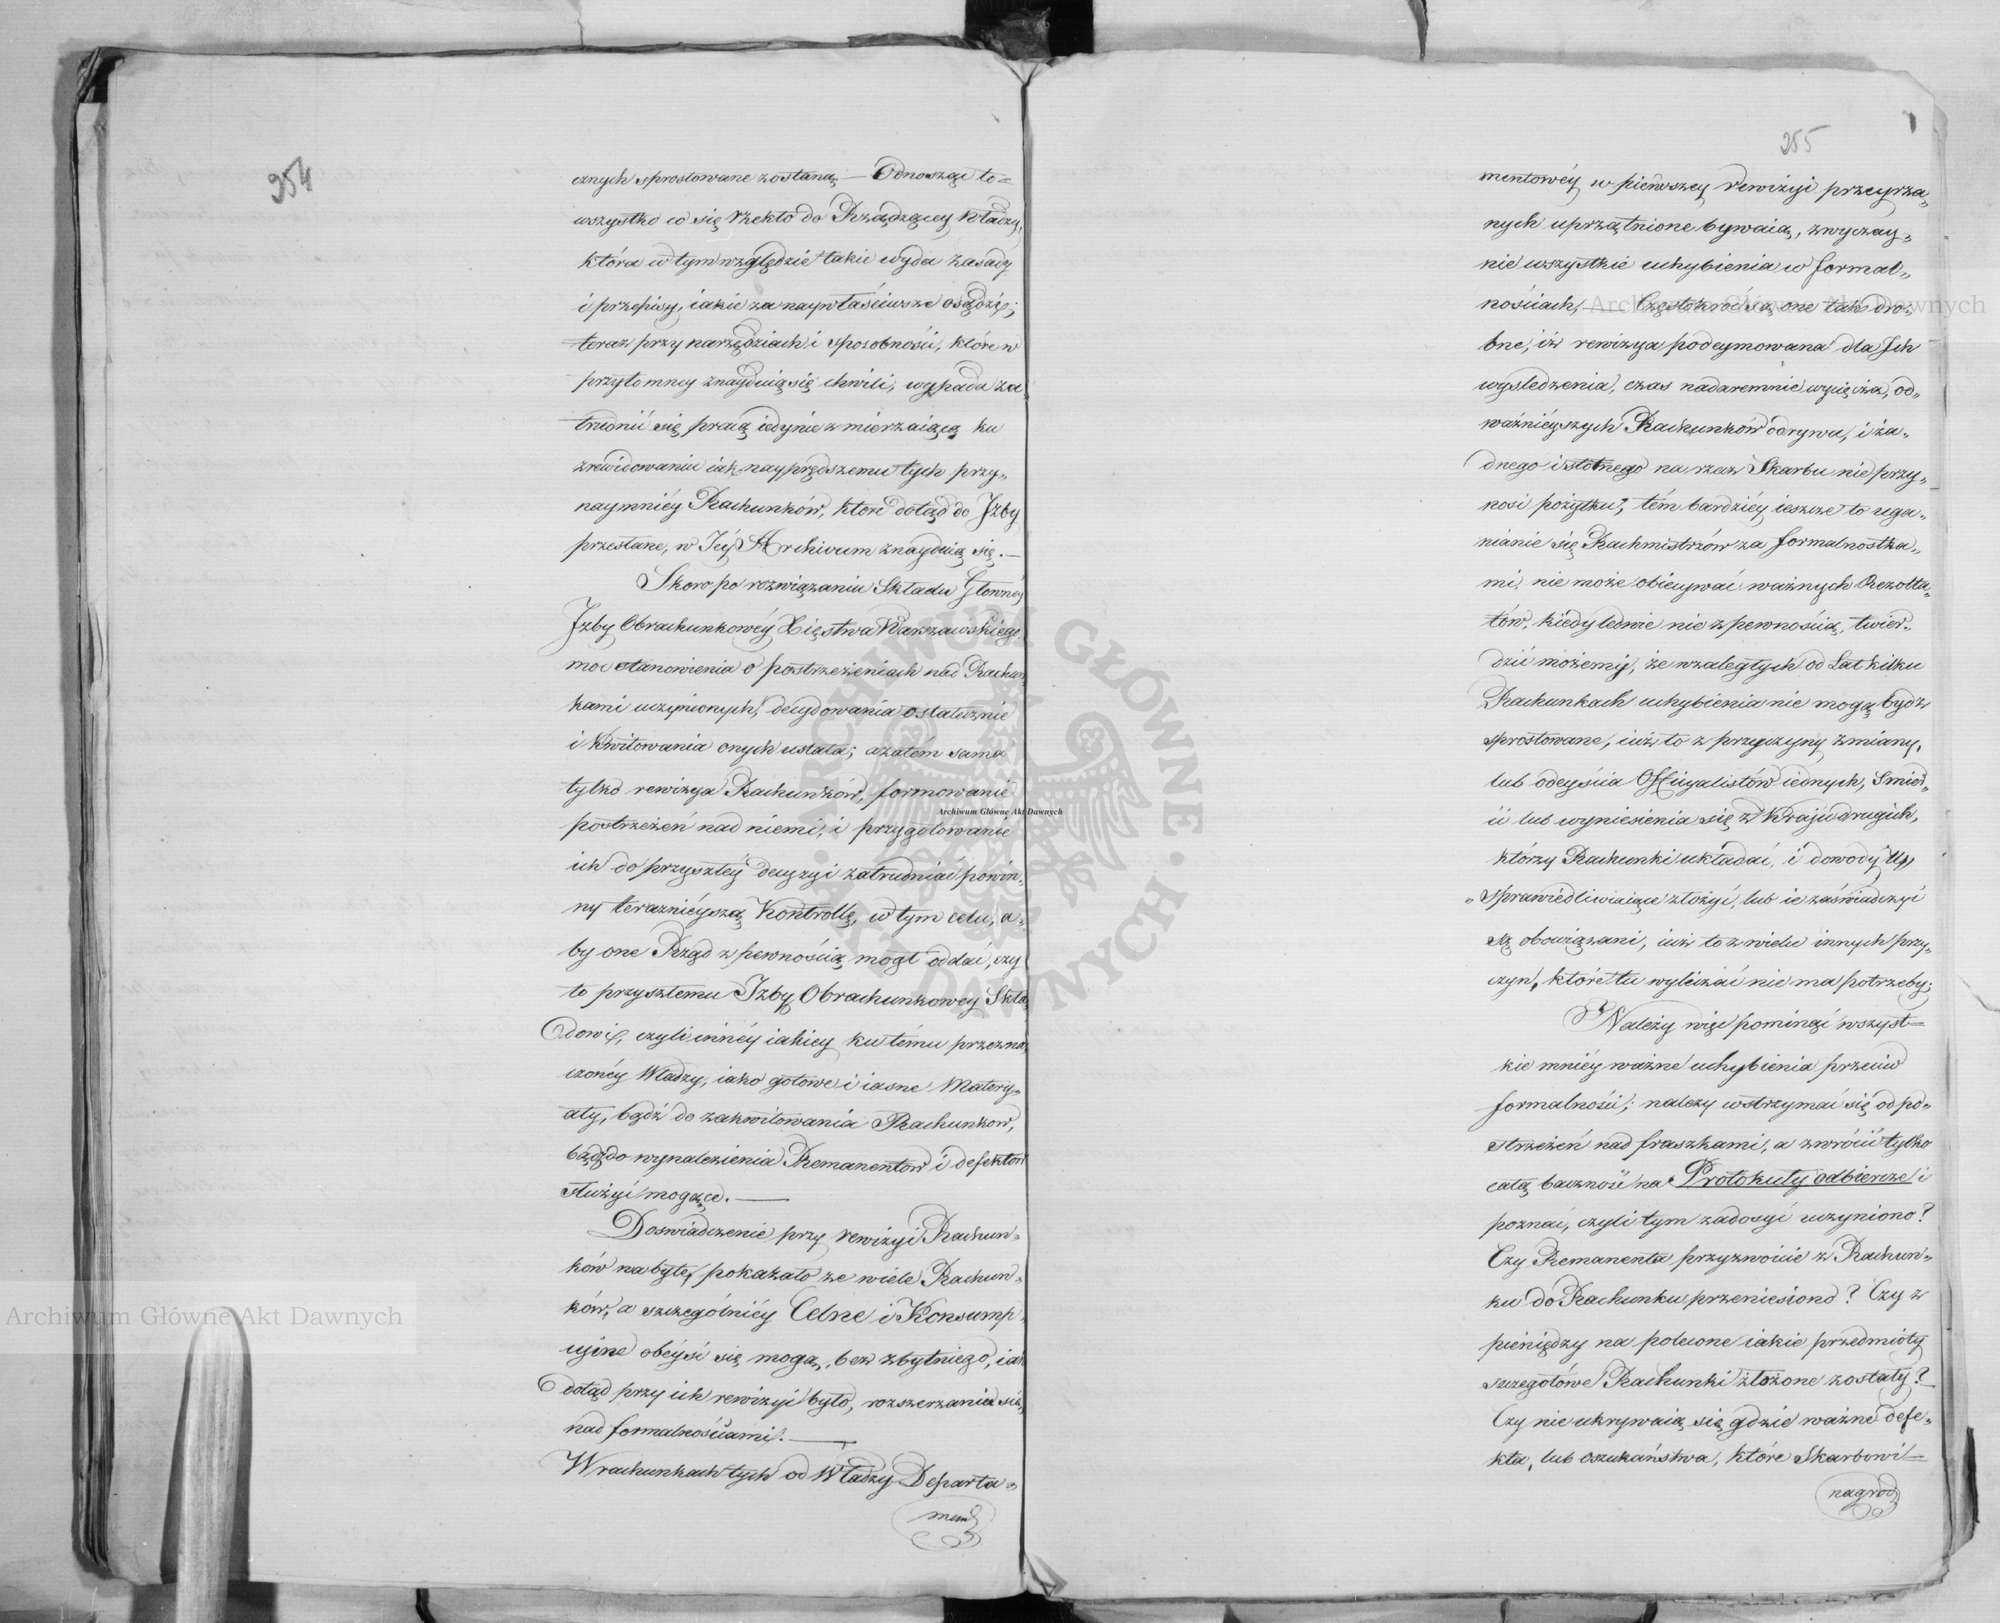 354
cznych sprostowane zostaną; — Odnosząc to=
wszystko co się rzekło do Rządzącey Władzy,
która w tym względzie takie wyda zasady
i przepisy, iakie za naywłaściwsze osądzi;
teraz przy narzędziach i sposobności, które w
przytomney znayduią się chwili, wypada za„
trudnić się pracą iedynie zmierzaiącą ku
zrewidowaniu iak nayprędszemu tych przy„
naymniéy Rachunków, które dotąd do Izby
przesłane, w Iéy Archivum znayduią się. —
Skoro po rozwiązaniu Składu Głownéy
Izby Obrachunkowéy Xięstwa Warszawskiego,
moc stanowienia o postrzeżeniach nad Rachun„
kami uczynionych, decydowania ostatecznie
i kwitowania onych ustała; a zatém sama
tylko rewizya Rachunków, formowanie
postrzeżeń nad niemi, i przygotowanie
ich do przyszłéy decyzyi zatrudniać powin„
ny teraznieyszą Kontrollę, w tym celu, a„
by one Rząd z pewnością mogł oddać, czy
to przyszłemu Izby Obrachunkowey Skła„
dowi, czyli innéy iakiey ku temu przezna„
czonéy Władzy, iako gotowe i iasne Matery„
ały, bądź do zakwitowania Rachunkow,
bądź do wynalezienia Remanentow i defektow
służyć mogące. —
Doswiadczenie przy rewizyi Rachun„
ków nabyte, pokazało że wiele Rachun„
ków, a szczególniéy Celne i Konsump„
cyjne obéyść się mogą, bez zbytniego, iak
dotąd przy ich rewizyi było, rozszerzania się,
nad formalnościami. —
W rachunkach tych od Władzy Departa„
men
355
mentowéy w pierwszey rewizyi przeyrza„
nych uprzątnione bywaią, zwyczay„
nie wszystkie uchybienia w formal„
nościach, — Częstokroć są one tak dro„
bne, iż rewizya podeymowana dla Ich
wyśledzenia, czas nadaremnie wycięża, od„
waźniéyszych Rachunków odrywa, i ża„
dnego istotnego na rzecz Skarbu nie przy„
nosi pożytku; tém bardziéy ieszcze to uga„
nianie się Rachmistrzów za formalnostka„
mi, nie może obiecywać ważnych Rezolta„
tów, kiedy ledwie nie z pewnością, twier„
dzić możemy, że w zaległych od Lat kilku
Rachunkach uchybienia nie mogą bydz
sprostowane, iuż to z przyczyny zmiany,
lub odeyścia Officyalistów iednych, Smier„
ci lub wyniesienia się z Kraju drugich,
którzy Rachunki układać, i dowody u„
„sprawiedliwiaiące złożyć, lub ie zaświadczyć
są obowiązani, iuż to z wielu innych przy„
czyn, które tu wyliczać nie ma potrzeby;
Należy więc pominąć wszyst=
kie mniéy ważne uchybienia przeciw
formalności; należy wstrzymać się od po„
strzeżeń nad fraszkami, a zwrócić tylko
całą baczność na Protokuły odbiercze i
poznać, czyli tym zadosyć uczyniono?
Czy Remanenta przyzwoicie z Rachun„
ku do Rachunku przeniesiono? Czy z
pieniędzy na polecone iakie przedmioty
szczegółowe Rachunki złożone zostały? —
Czy nie ukrywaią się gdzie ważne defe„
kta, lub oszukaństwa, które Skarbowi —
nagrod
Archiwum Główne Akt Dawnych
Archiwum Główne Akt Dawnych
Archiwum Główne Akt Dawnych
ARCHIWUM GŁÓWNE AKT DAWNYCH